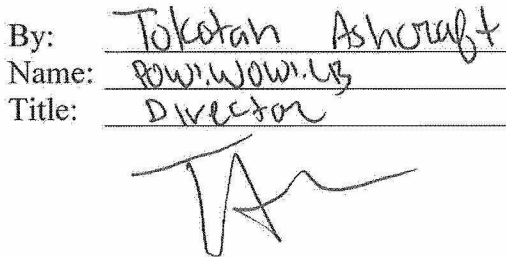 By: Tokotah Ashcraft
Name: POW!.WOW!.LB
Title: Director
TA